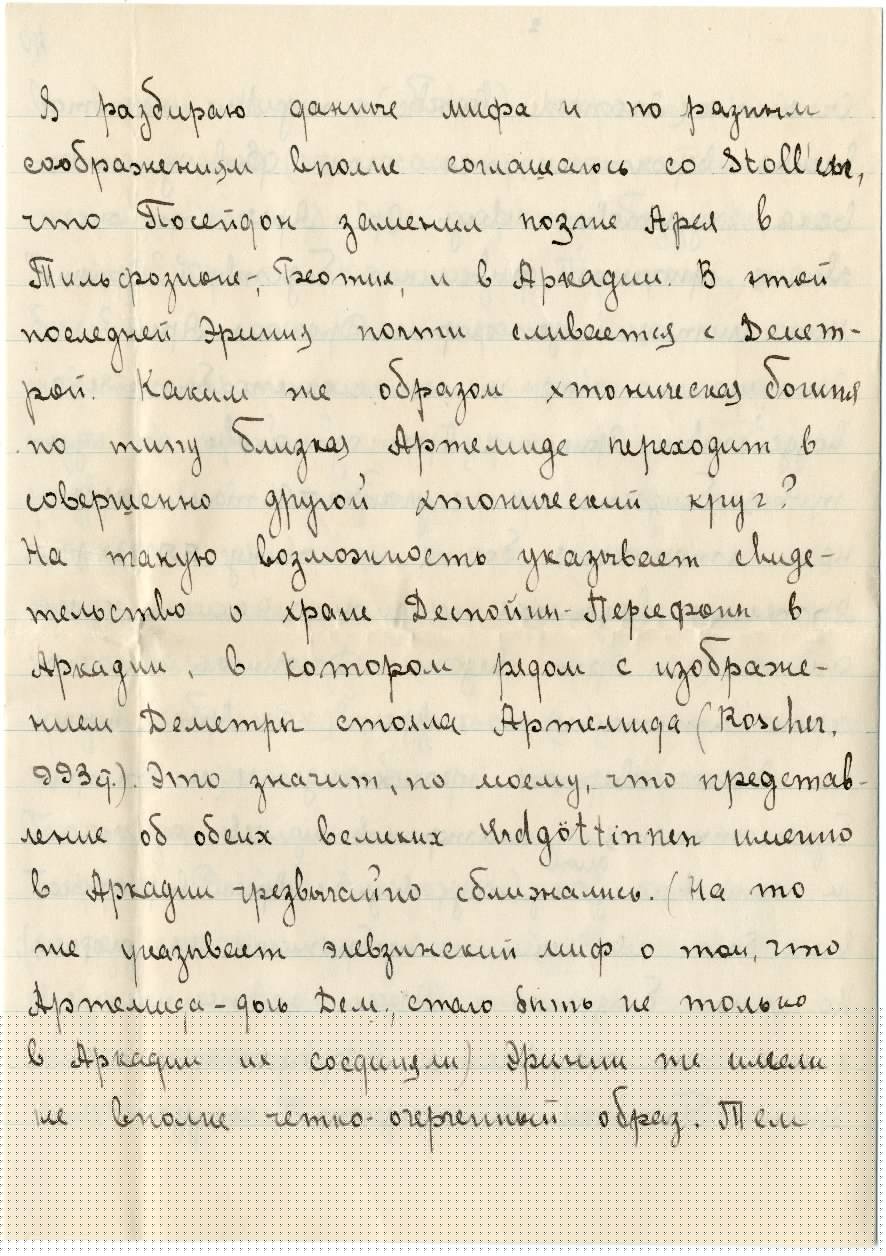 Я разбираю данные мифа и по разным
соображениям вполне соглашаюсь со Stoll'ем,
что Посейдон заменил позже Арея в
Тильфозионе-, Беотии, и в Аркадии. В этой
последней Эриния почти сливается с Демет-
рой. Каким же образом хтоническая богиня
по типу близкая Артемиде переходит в
совершенно другой хтонический круг?
На такую возможность указывает свиде-
тельство о храме Деспойны-Персефоны в
Аркадии, в котором рядом с изображе-
нием Деметры стояла Артемида (Roscher,
993q.). Это значит, по моему, что представ-
ление об обеих великих Erdgöttinnen именно
в Аркадии чрезвычайно сближались. (На то
же указывает элевзинский миф о том, что
Артемида-дочь Дем., стало быть не только
в Аркадии их соединяли) Эринии же имели
не вполне четко-очерченный образ. Тем